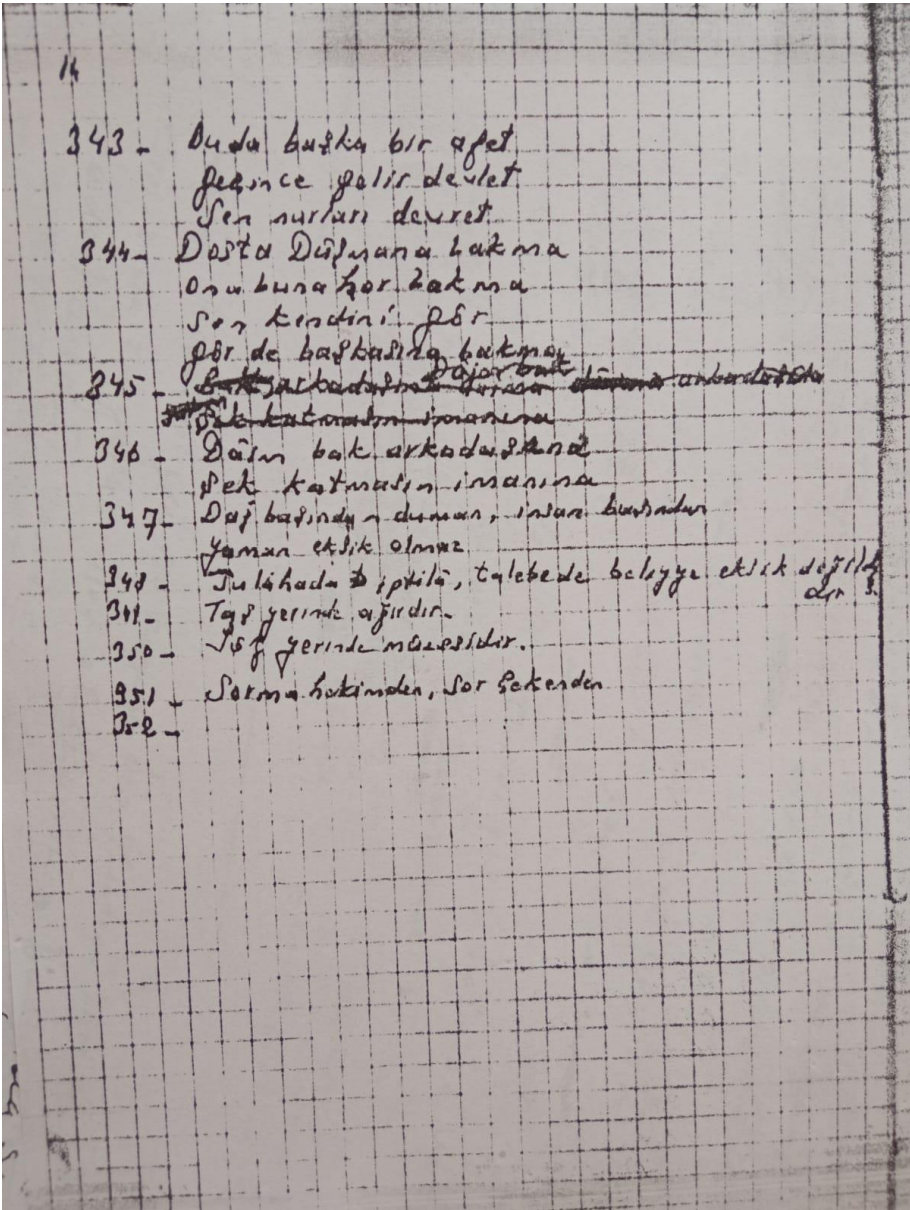 14
343- Buda başka bir afet
geçince gelir devlet
Sen nurları devret
344- Dosta Düşmana bakma
Onu buna hor bakma
Sen kendini gör
gör de başkasına bakma
345-
346- Dâim bak arkadaşına
Şek katmasın imanına
347- Dağ başından duman, insan başından
yaman eksik olmaz
348- Sulâhada iptilâ, talebede beliyye eksik değil
dir
349- Taş yerinde ağırdır.
350- Söz yerinde müessidir.
351- Sorma hekimden, sor çekenden
352-